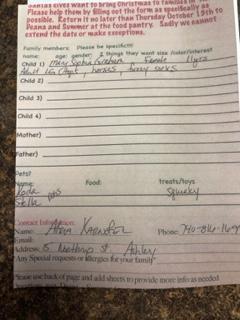 Santas Elves want to bring Christmas to families in
Please help them by filling out the form as specifically as
possible. Return it no later than Thursday October 15th to
Deana and Summer at the food pantry. Sadly we cannot
extend the date or make exceptions.
Family members: Please be specific!!!
name: age: gender: 3 things they want size /color/interest
Child 1) Mary Sophia Graham Female 11yrs
Adult horses, fuzzy socks
Child 2)
Child 3)
Child 4)
Mother)
Father)
Pets?
Name: Food: treats/toys
pets Squeaky
Stella
Contact Information:
Name: Phone: 740-816-
Email:
Address: 5 St. Ashley
Any Special requests or allergies for your family
Please use back of page and add sheets to provide more info as needed